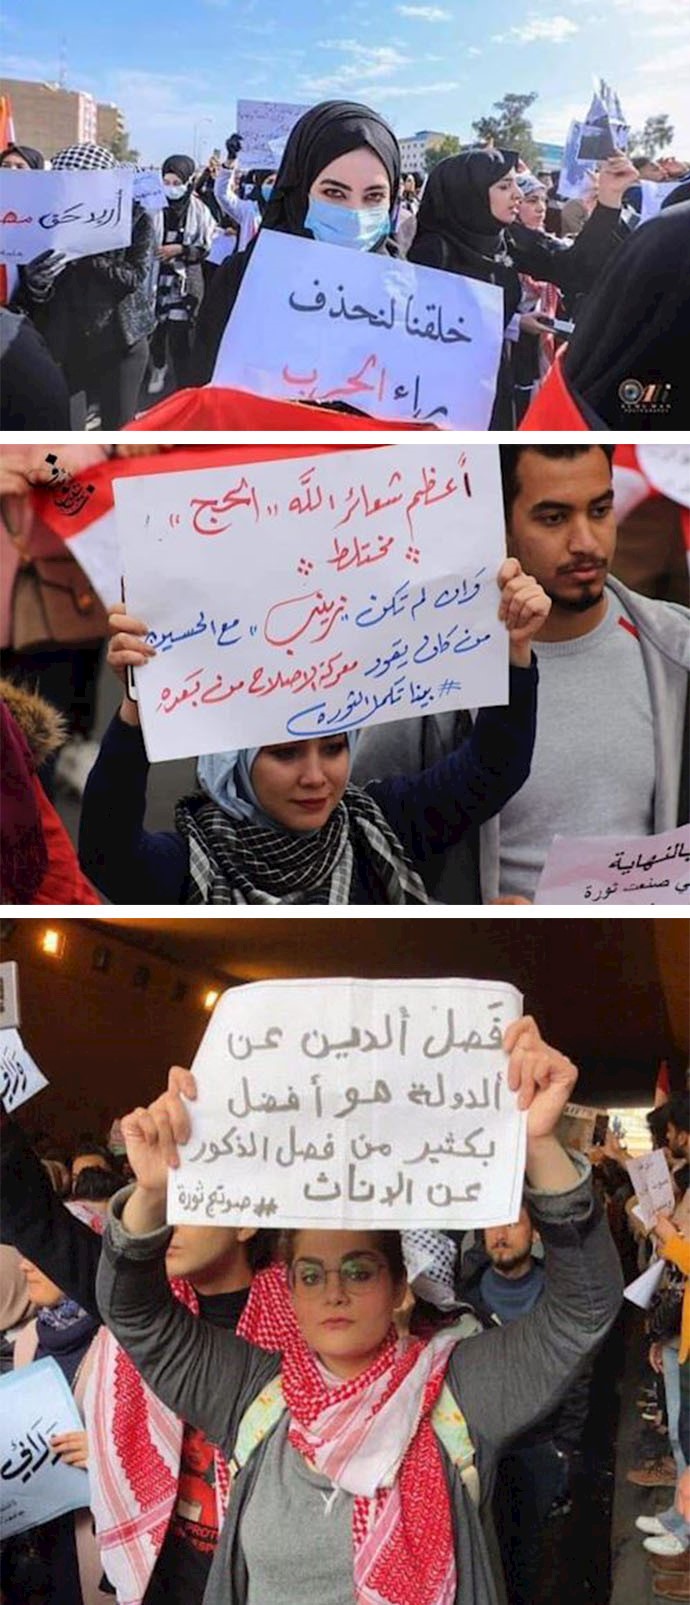 أريد حق
خلقنا لنحذف
راء الحرب
أعظم شعائر الله "الحج"
مختلط
وان لم تكن "زينب" مع الحسين
من كان يقود معركة الاصلاح من بعده
#بينا تكمل الثوره
بالنهاية
ي صنعت ثورة
فَصل ألدين عن
ألدولة هو أفضل
بكثير من فصل الذكور
عن الاناث
##صوتج ثورة